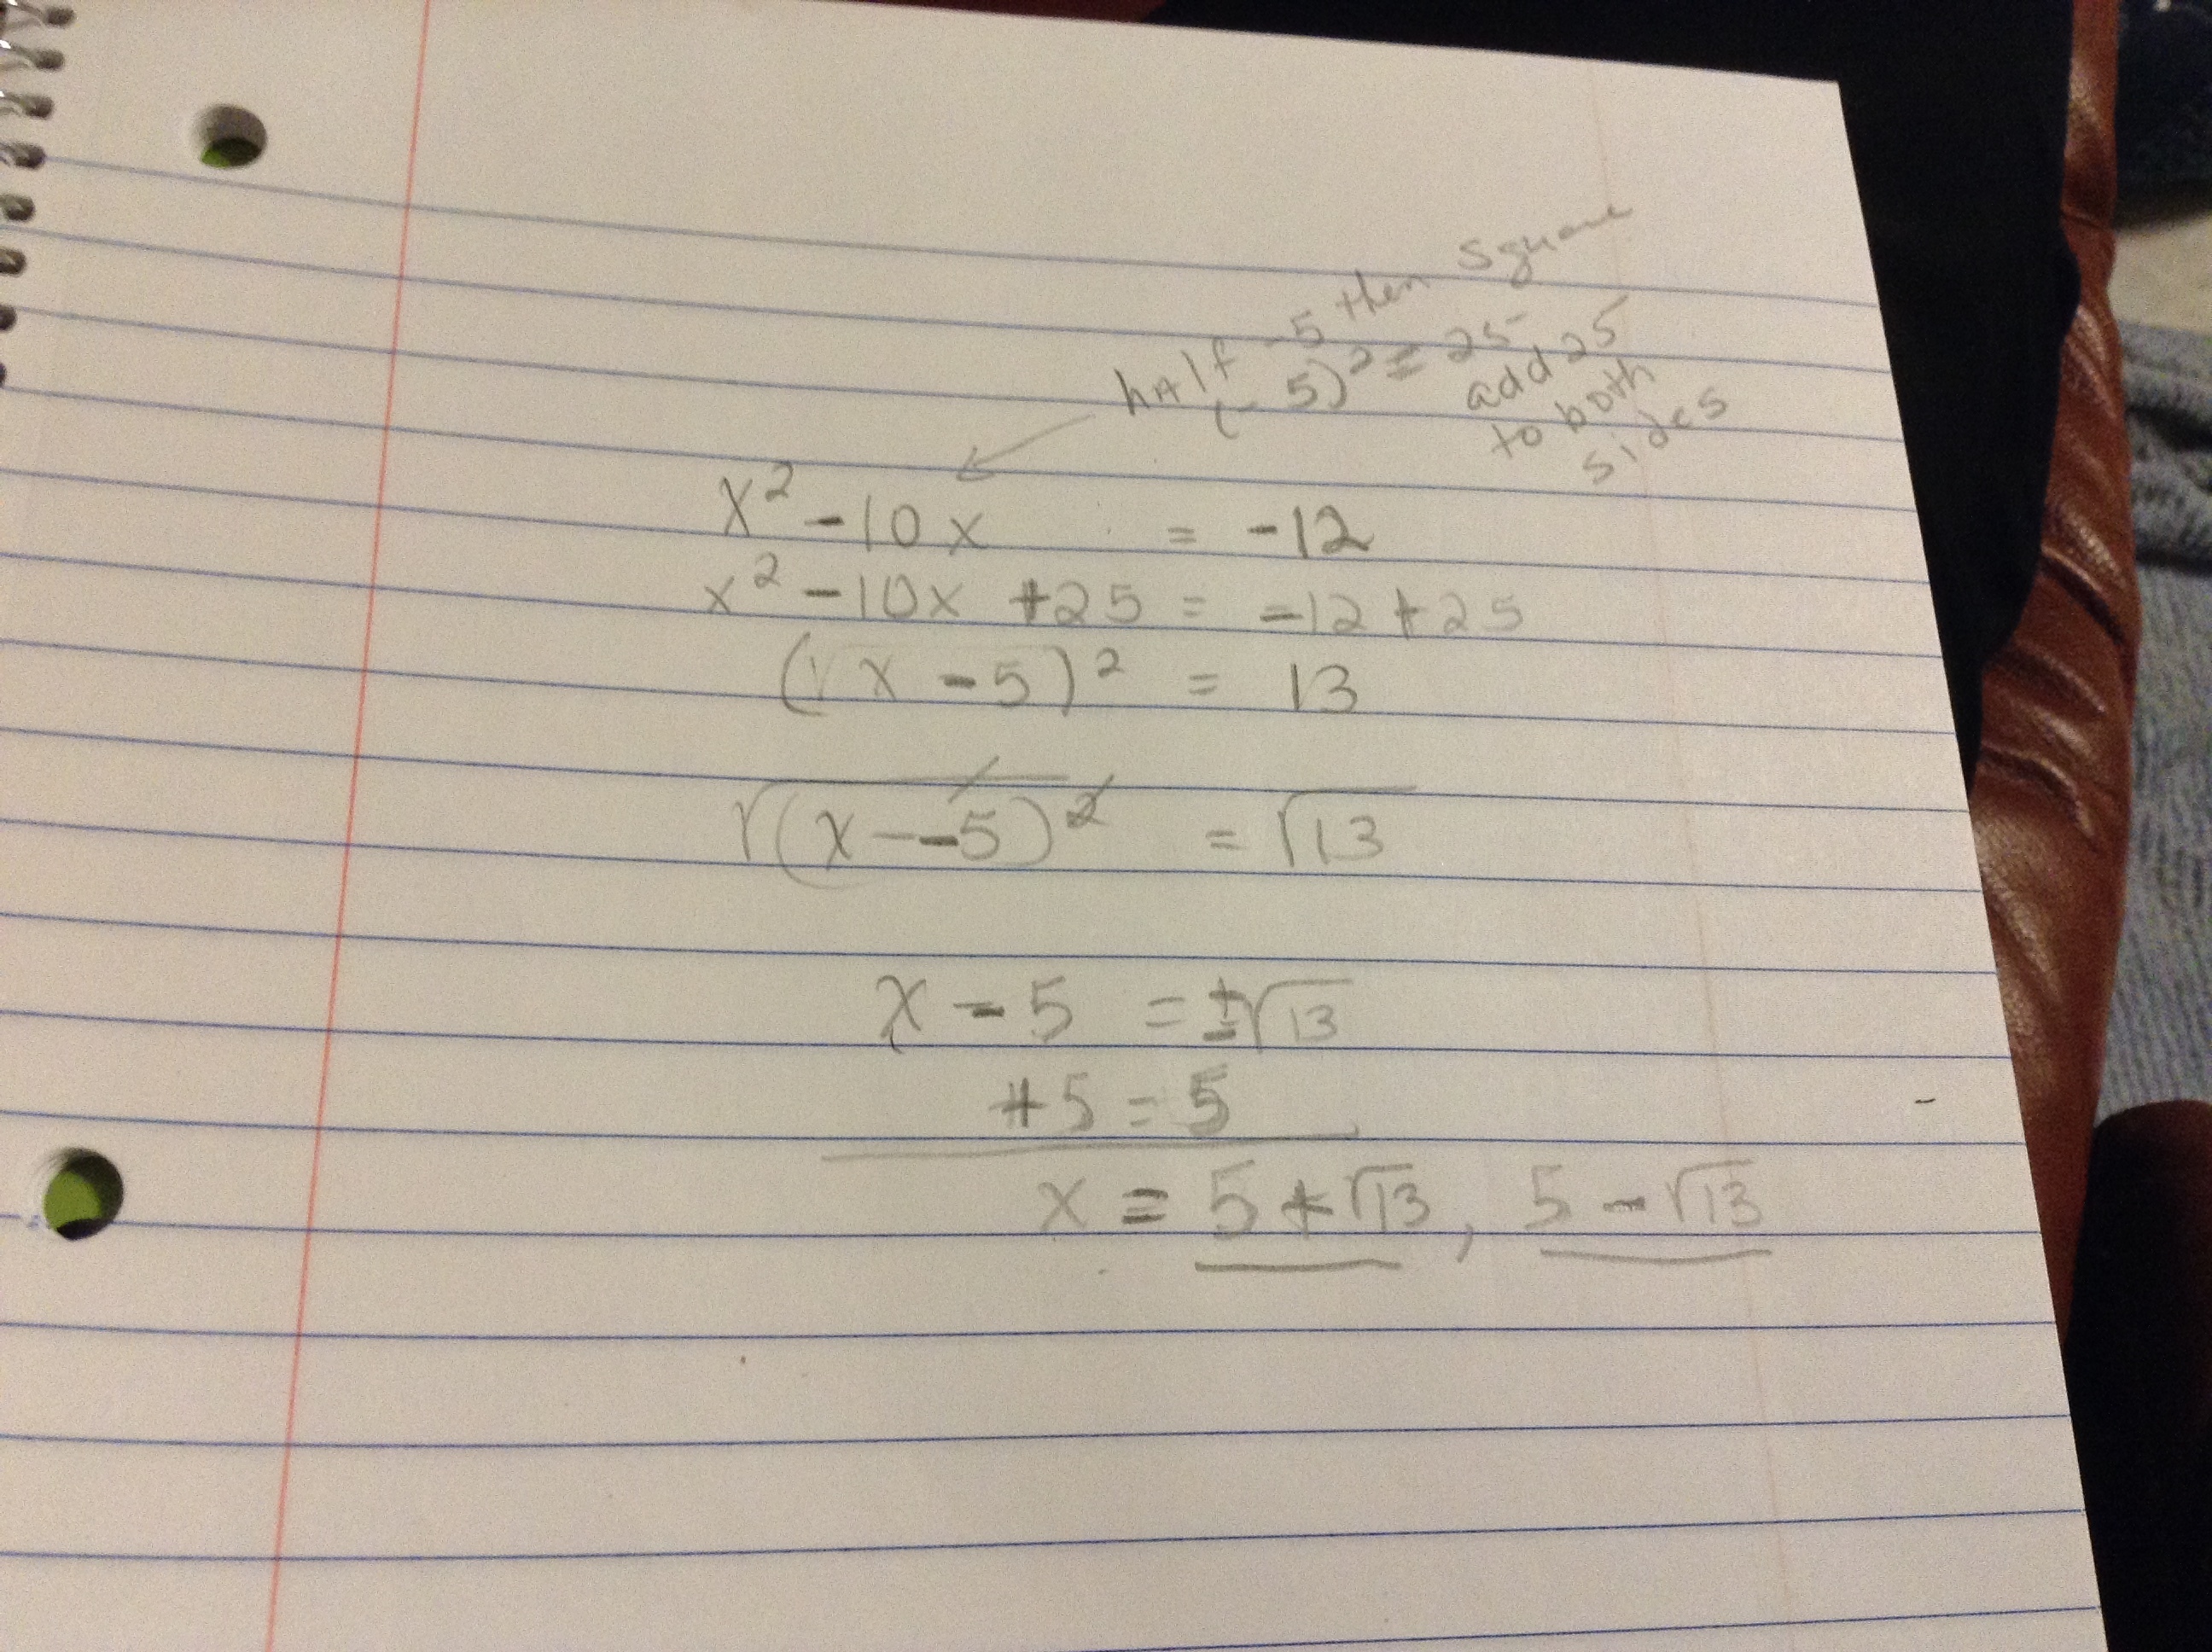 half -5 then square
(-5)² = 25
add 25
to both
sides
x² - 10x = -12
x² - 10x + 25 = -12 + 25
(√x - 5)² = 13
√(x - -5)² = √13
x - 5 = ±√13
+5 = 5
x = 5 + √13, 5 - √13